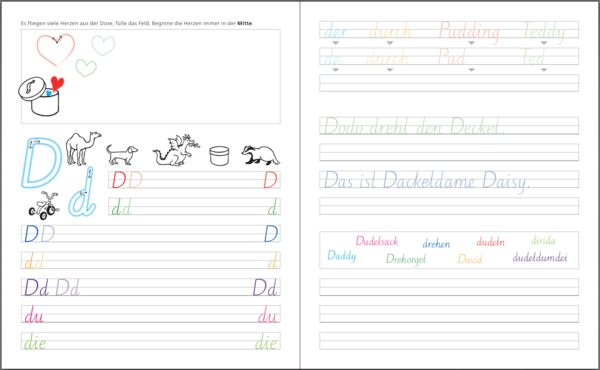 Es fliegen viele Herzen aus der Dose, fülle das Feld. Beginne die Herzen immer in der Mitte
D
d
D D D
d d d
D D D
d d d
Dd Dd Dd
du du
die die
der durch Pudding Teddy
de durch Pud Ted
Dodo dreht den Deckel.
Das ist Dackeldame Daisy.
Dudelsack drehen dudeln dirida
Daddy Drehorgel David dudeldumdei